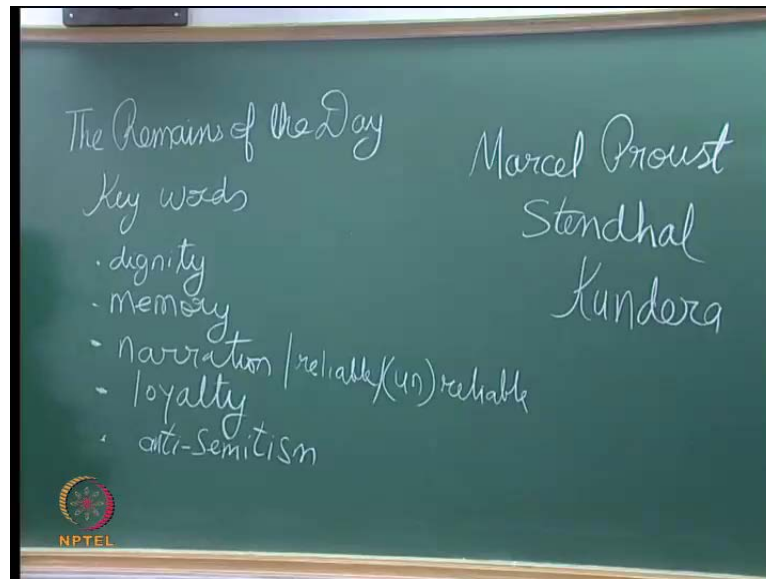 The Remains of the Day
Key words
· dignity
- memory
- narration / reliable/(un)reliable
- loyalty
· anti-Semitism
Marcel Proust
Stendhal
Kundera
NPTEL